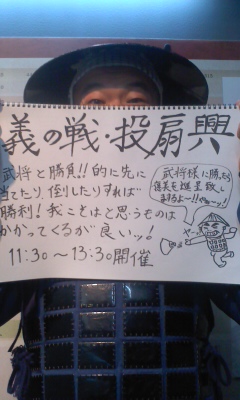 義の戦・投扇興
武将と勝負!!的に先に
当てたり、倒したりすれば
勝利!我こそはと思うものは
かかってくるが良いッ!
11:30~13:30開催
武将様に勝ったら
褒美を進呈致し
ますよー!!やぁーッ!
やー